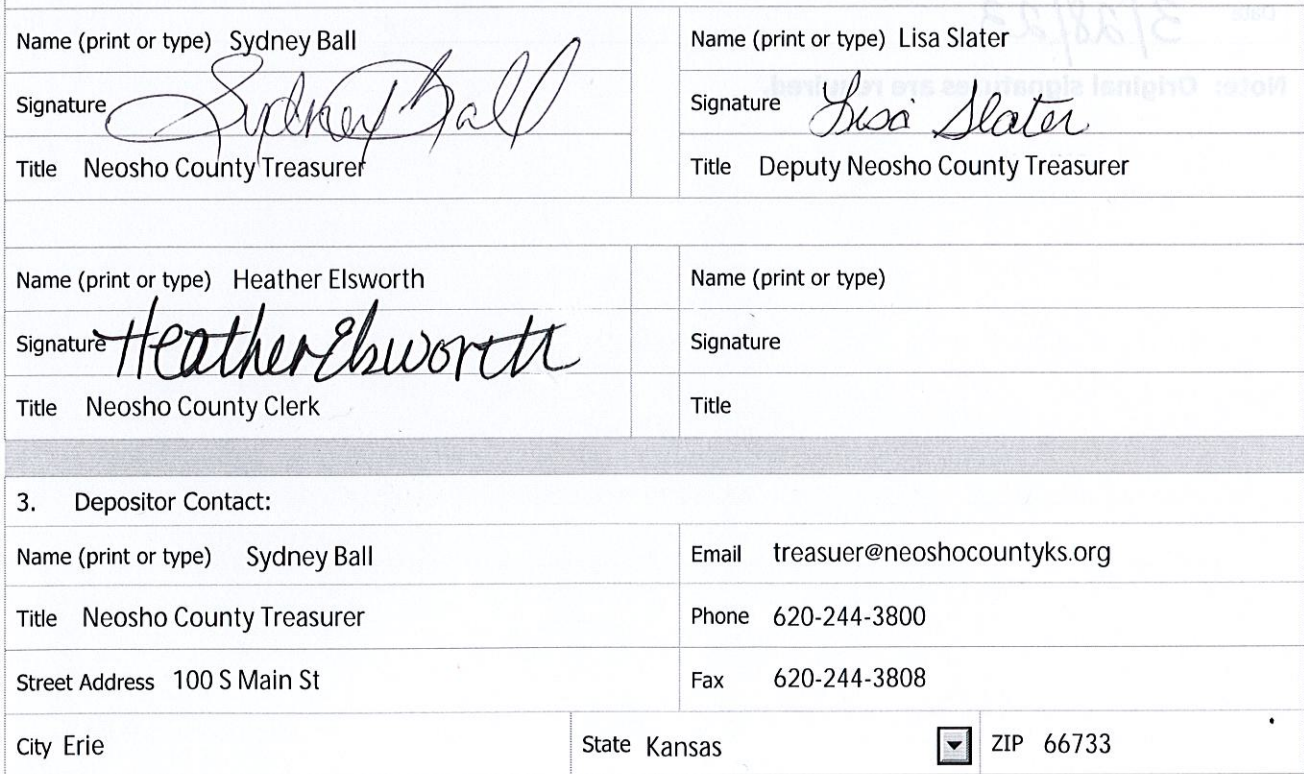 Name (print or type) Sydney Ball
Signature Sydney Ball
Title Neosho County Treasurer
Name (print or type) Lisa Slater
Signature Lisa Slater
Title Deputy Neosho County Treasurer
Name (print or type) Heather Elsworth
Signature Heather Elsworth
Title Neosho County Clerk
Name (print or type)
Signature
Title
3. Depositor Contact:
Name (print or type) Sydney Ball
Email treasuer@neoshocountyks.org
Title Neosho County Treasurer
Phone 620-244-3800
Street Address 100 S Main St
Fax 620-244-3808
City Erie State Kansas ZIP 66733
Date 3/28/22
Note: Original signatures are required.